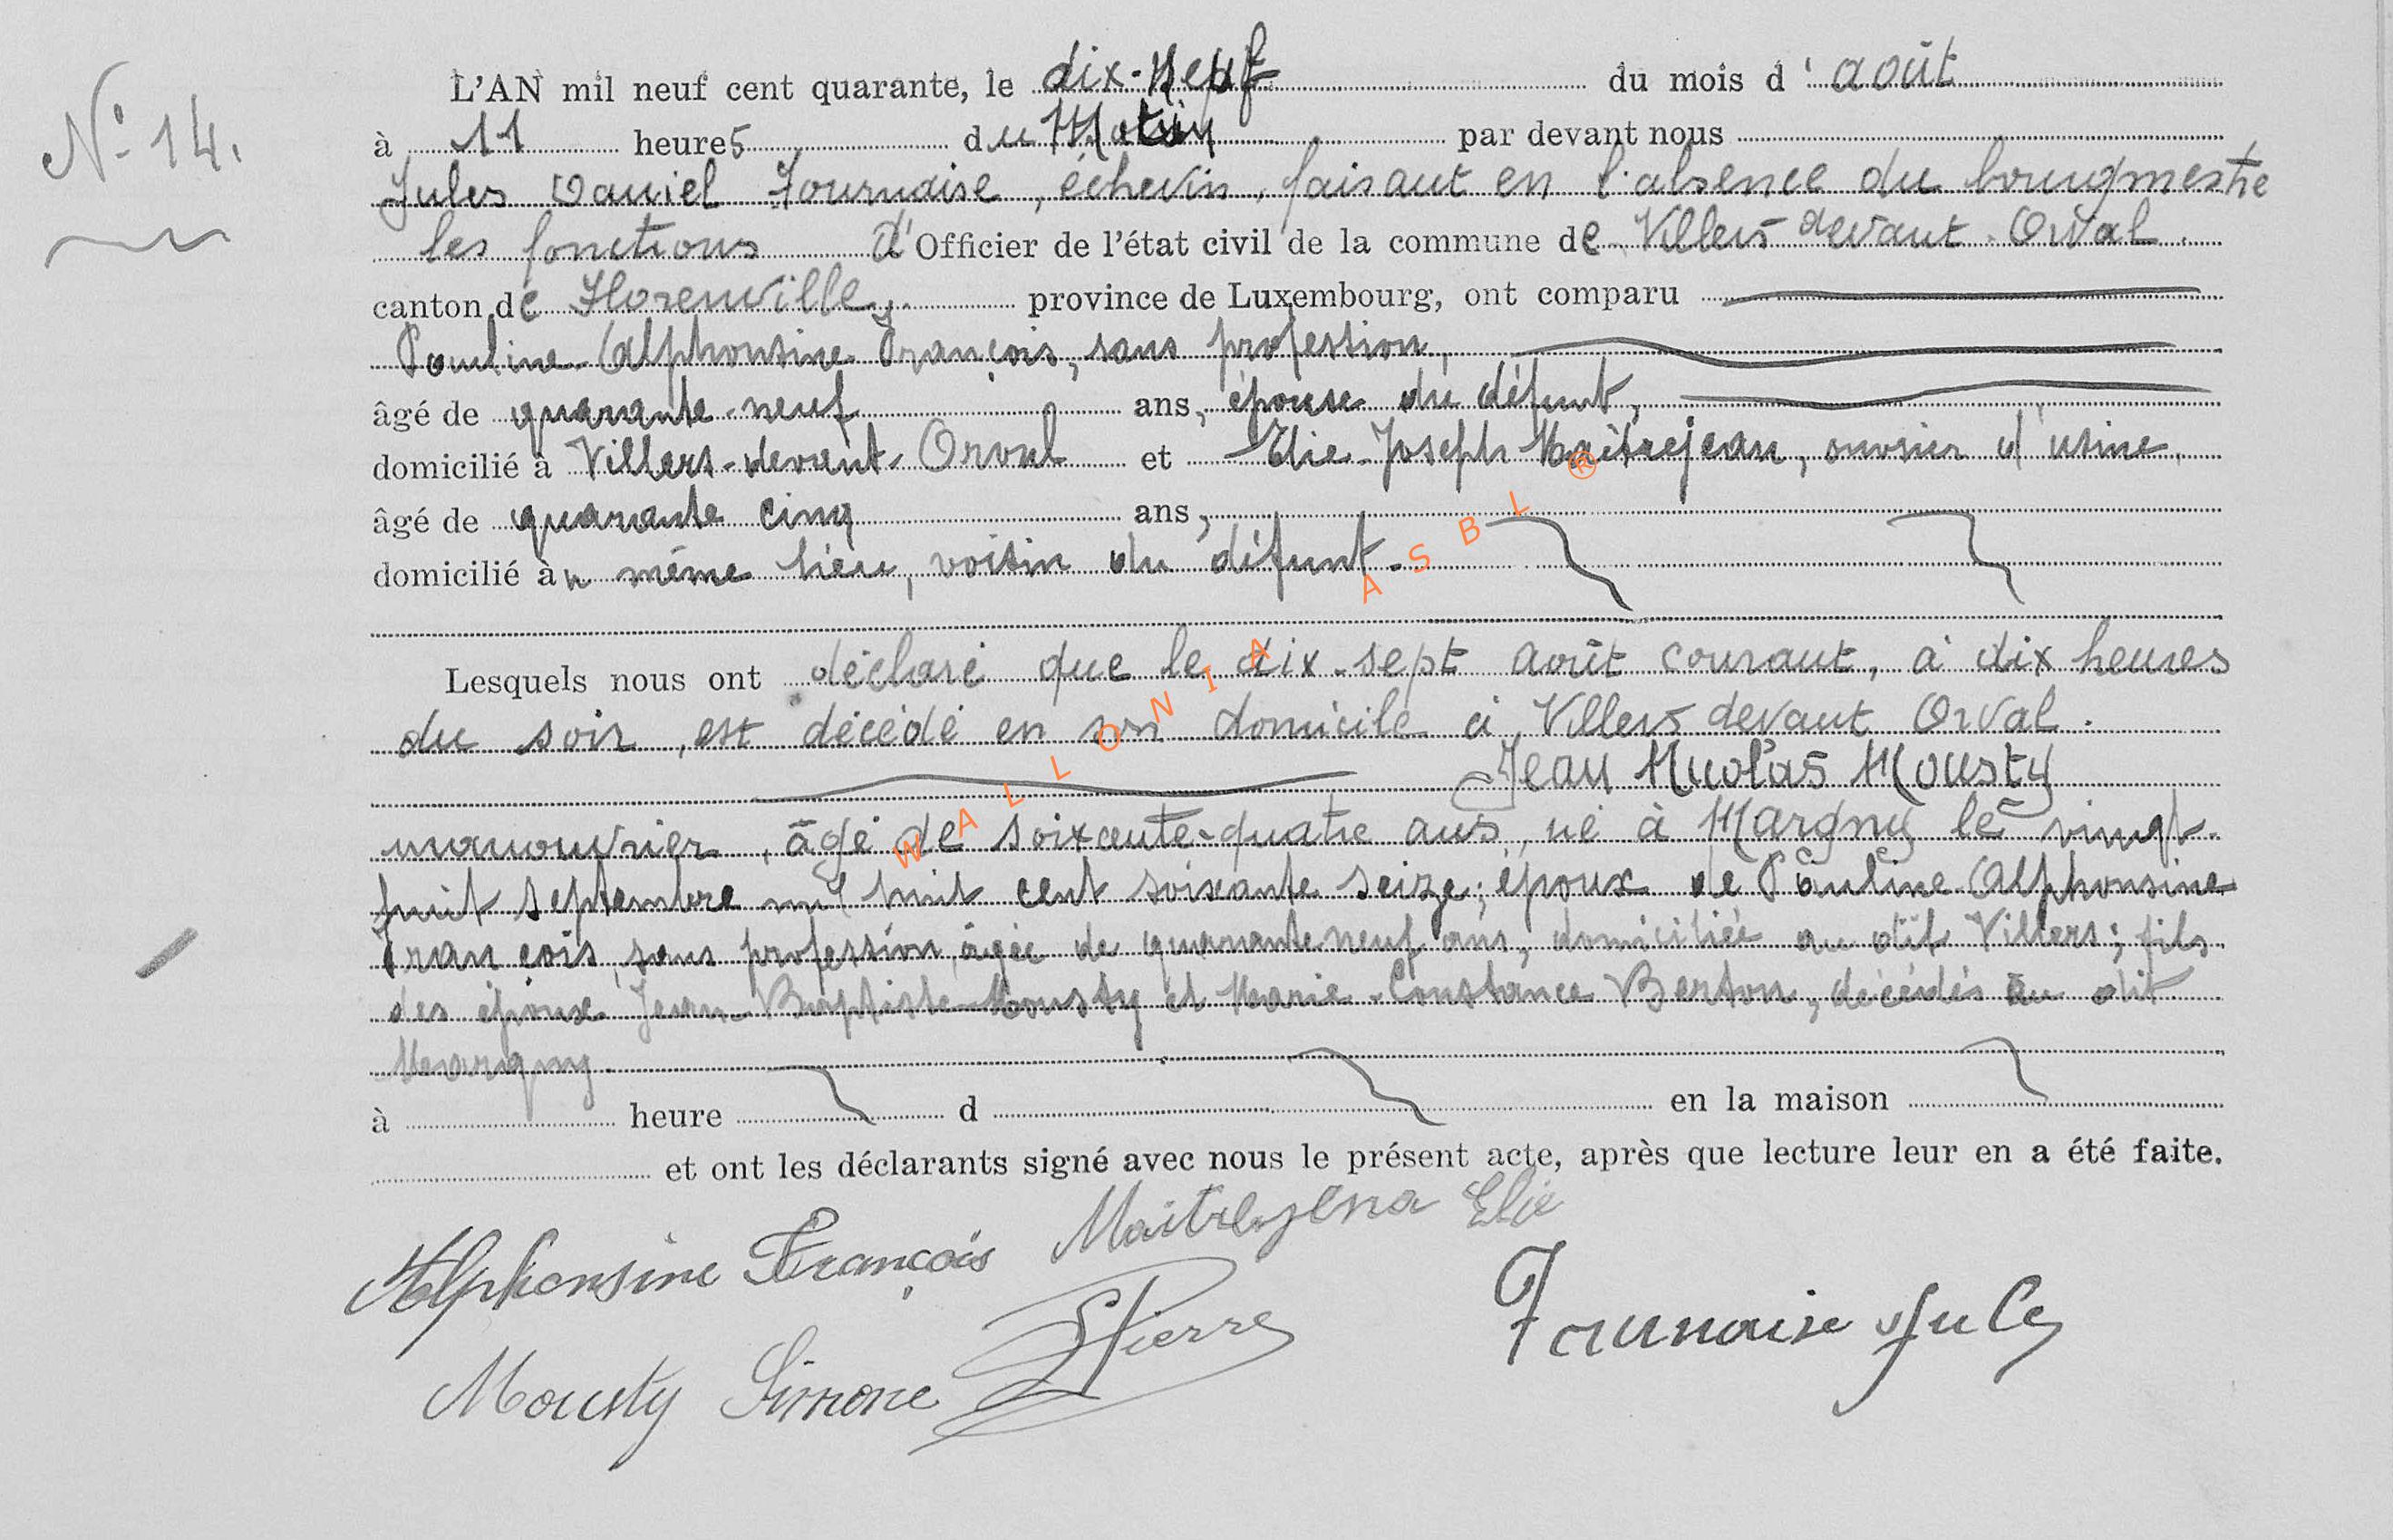 N° 14.
L'AN mil neuf cent quarante, le dix-neuf du mois d'août
à 11 heures du Matin par devant nous
Jules Daniel Fournaise, échevin, faisant en l'absence du bourgmestre
les fonctions d'Officier de l'état civil de la commune de Villers devant Orval.
canton de Florenville, province de Luxembourg, ont comparu
Pauline Alphonsine François, sans profession,
âgé de quarante-neuf ans, épouse du défunt,
domicilié à Villers-devant-Orval et Elie-Joseph Maîtrejean, ouvrier d'usine,
âgé de quarante cinq ans,
domicilié au même lieu, voisin du défunt.
Lesquels nous ont déclaré que le dix-sept août courant, à dix heures
du soir, est décédé en son domicile à Villers devant Orval.
Jean Nicolas Mousty
manouvrier, âgé de soixante-quatre ans, né à Margny le vingt-
huit septembre mil huit cent soixante seize; époux de Pauline Alphonsine
François, sans profession, âgée de quarante neuf ans, domiciliée au dit Villers; fils
des époux Jean-Baptiste Mousty et Marie-Constance Berton, décédés au dit
Margny.
à heure d en la maison
et ont les déclarants signé avec nous le présent acte, après que lecture leur en a été faite.
Alphonsine François Maitrejean Elie
Mousty Simone Pierre Fournaise Jules
WALLONIA ASBL ®